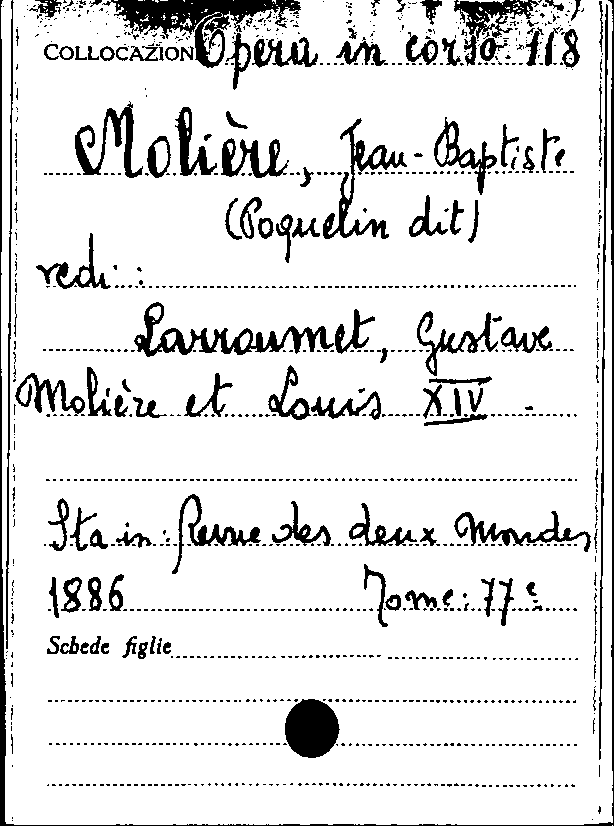 COLLOCAZION Opera in corso. 118
Molière, Jean-Baptiste
(Poquelin dit)
vedi:
Larroumet, Gustave
Molière et Louis XIV -
Sta in: Revue des deux Mondes
1886 Tome: 77e
Schede figlie